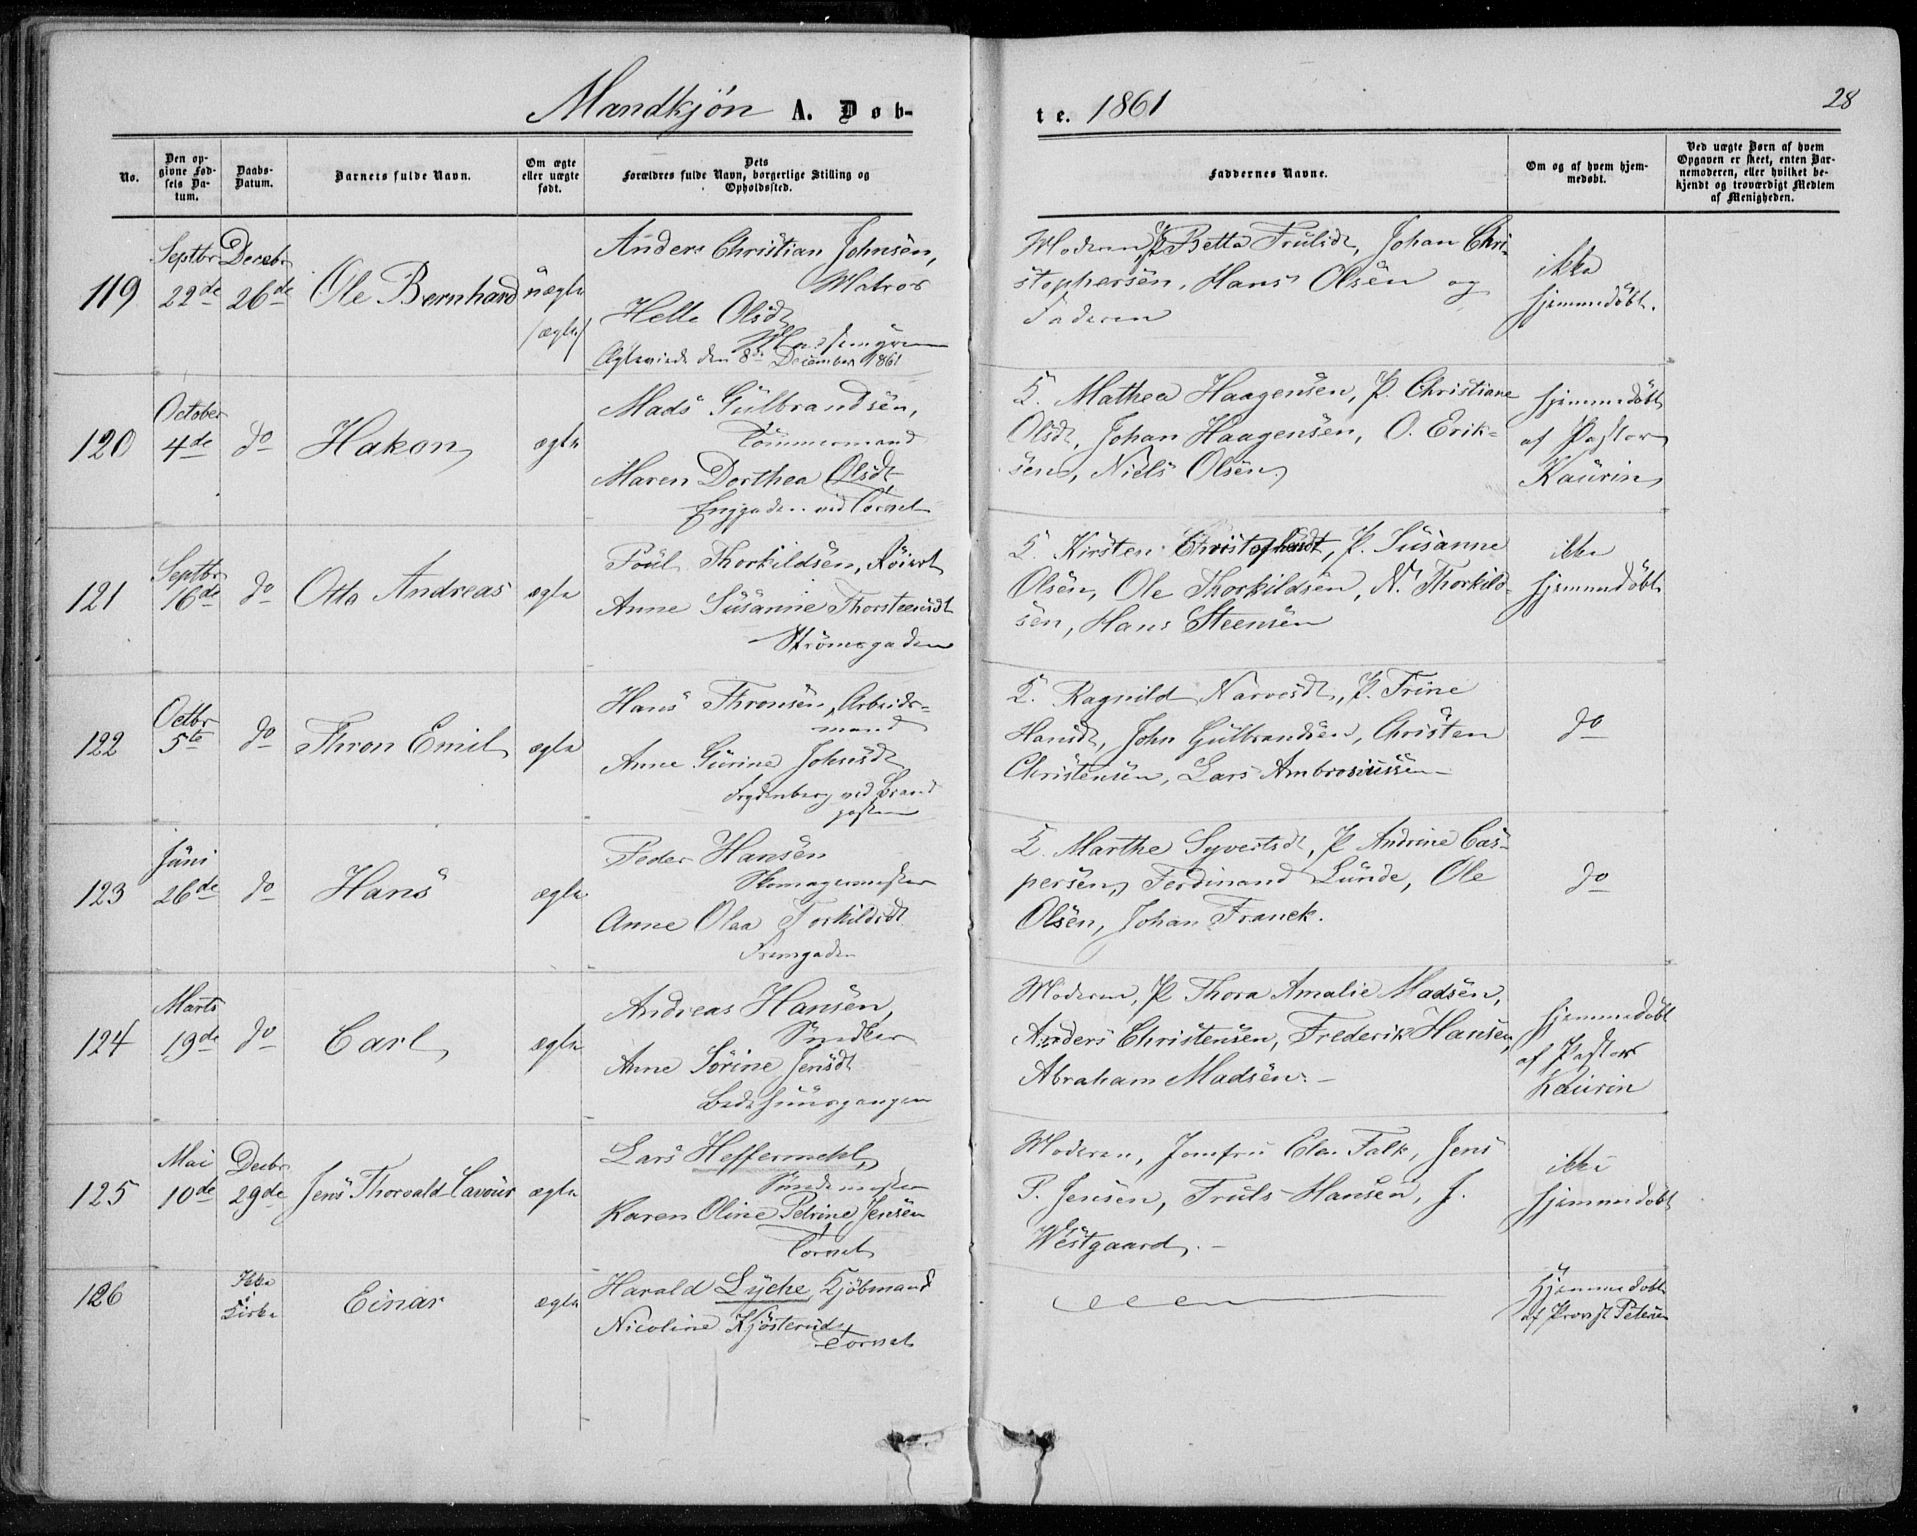 Mandkjön A. Døb-
te. 1861
28
No.
Den op-
givne Fød-
sels Da-
tum.
Daabs-
Datum.
Barnets fulde Navn.
Om ægte
eller uægte
født.
Dets
Forældres fulde Navn, borgerlige Stilling og
Opholdssted.
Faddernes Navne.
Om og af hvem hjem-
medøbt.
Ved uægte Børn af hvem
Opgaven er skeet, enten Bar-
nemoderen, eller hvilket be-
kjendt og troværdigt Medlem
af Menigheden.
119
Septbr
22de
Decebr
26de
Ole Bernhard
üægte
/ægte/
Anders Christian Johnsen,
Matros
Helle Olsdt
Ægteviede den 8de December 1861
Moderen, P. Betta Trulsdt, Johan Chri-
stophersen, Hans Olsen og
Faderen
ikke
hjemmedöbt.
120
October
4de
do
Hakon
ægte
Mads Gülbrandsen,
Tömmermand
Maren Dorthea Olsdt
Enggaden ved Torvet
K. Mathea Haagensen, P. Christiane
Olsdt, Johan Haagensen, O. Erik-
sen, Niels Olsen
hjemmedöbt
af Pastor
Kaurin
121
Septbr
16de
do
Otto Andreas
ægte
Poül Thorkildsen, Röiert
Anne Süsanne Thorsteensdt
Strömsgaden
K. Kirsten Christophersdt, P. Süsanne
Olsen, Ole Thorkildsen, N. Thorkild-
sen, Hans Steensen
ikke
hjemmedöbt
122
Octbr
5te
do
Thron Emil
ægte
Hans Thronsen, Arbeids-
mand
Anne Sürine Johnsdt
Frydenberg ved Brand
posten
K. Ragnild Narvesdt, P. Trine
Hansdt, John Gülbrandsen, Christen
Christensen, Lars Ambrosiussen
do
123
Jüni
26de
do
Hans
ægte
Peder Hansen
Skomagermester
Anne Olaa Torkildsdt
Tremgaden
K. Marthe Syvertsdt, P. Andrine Cas-
persen, Ferdinand Lünde, Ole
Olsen, Johan Franck.
do
124
Marts
19de
do
Carl
ægte
Andreas Hansen,
Snedker
Anne Sörine Jensdt
Bedehüüsgangen
Moderen, P. Thora Amalie Madsen,
Anders Christensen, Frederik Hansen,
Abraham Madsen. -
hjemmedöbt
af Pastor
Kaurin
125
Mai
10de
Decbr
29de
Jens Thorvald Cavour
ægte
Lars Heffermehl,
Karen Oline Petrine Jensen
Torvet
Moderen, Jomfru Elen Falk, Jens
P. Jensen, Truls Hansen, J.
Westgaard. -
ikke
hjemmedöbt
126
Ikke
i
Kirke
Einar
ægte
Harald Lyche, Kjöbmand
Nicoline Kjösterud
Torvet
Hjemmedöbt
af Provst Petersen